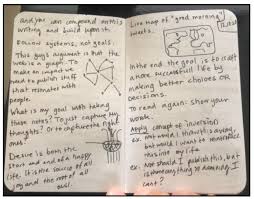 and you can compound on this
writing and build upon it.
Follow systems, not goals.
This guys argument is that the
web is a graph. To
make an impact we
want to publish stuff
that resonates with
people.
What is my goal with taking
these notes? To just capture my
thoughts? Or to capture the right
ones.
Desire is both the
start and end of a happy
life. It is the source of all
joy and the root of all
evil.
Live map of "good morning"
tweets.
In the end, the goal is to craft
a more successful life by
making better choices or
decisions.
To read again: show your
work.
Apply concept of inversion
ex: Not would I thought this away,
but would I want to reintroduce
this into my life
ex: Not should I publish this, but
is there anything to demand, I
can't?